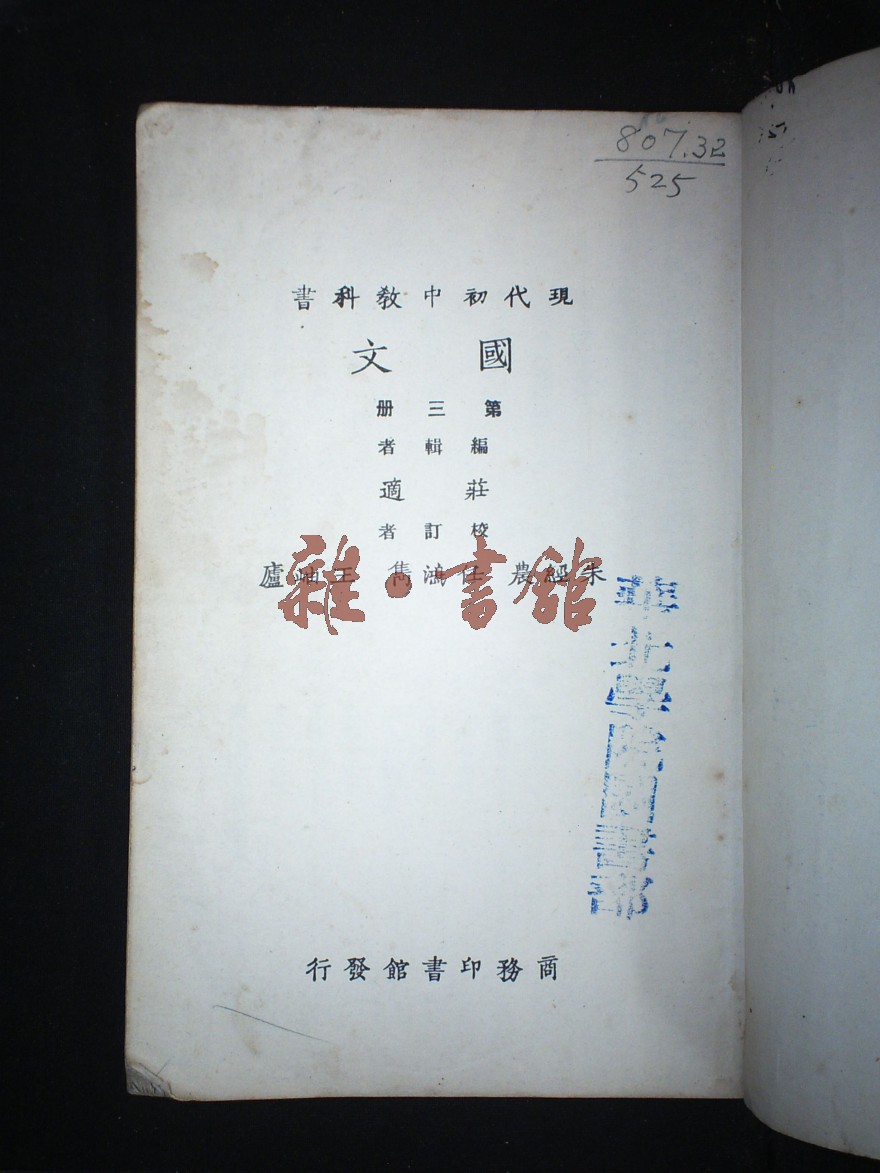 807.32
525
現代初中教科書
國文
第三册
編輯者
莊適
校訂者
朱經農 任鴻雋 王岫廬
雜·書館
商務印書館發行